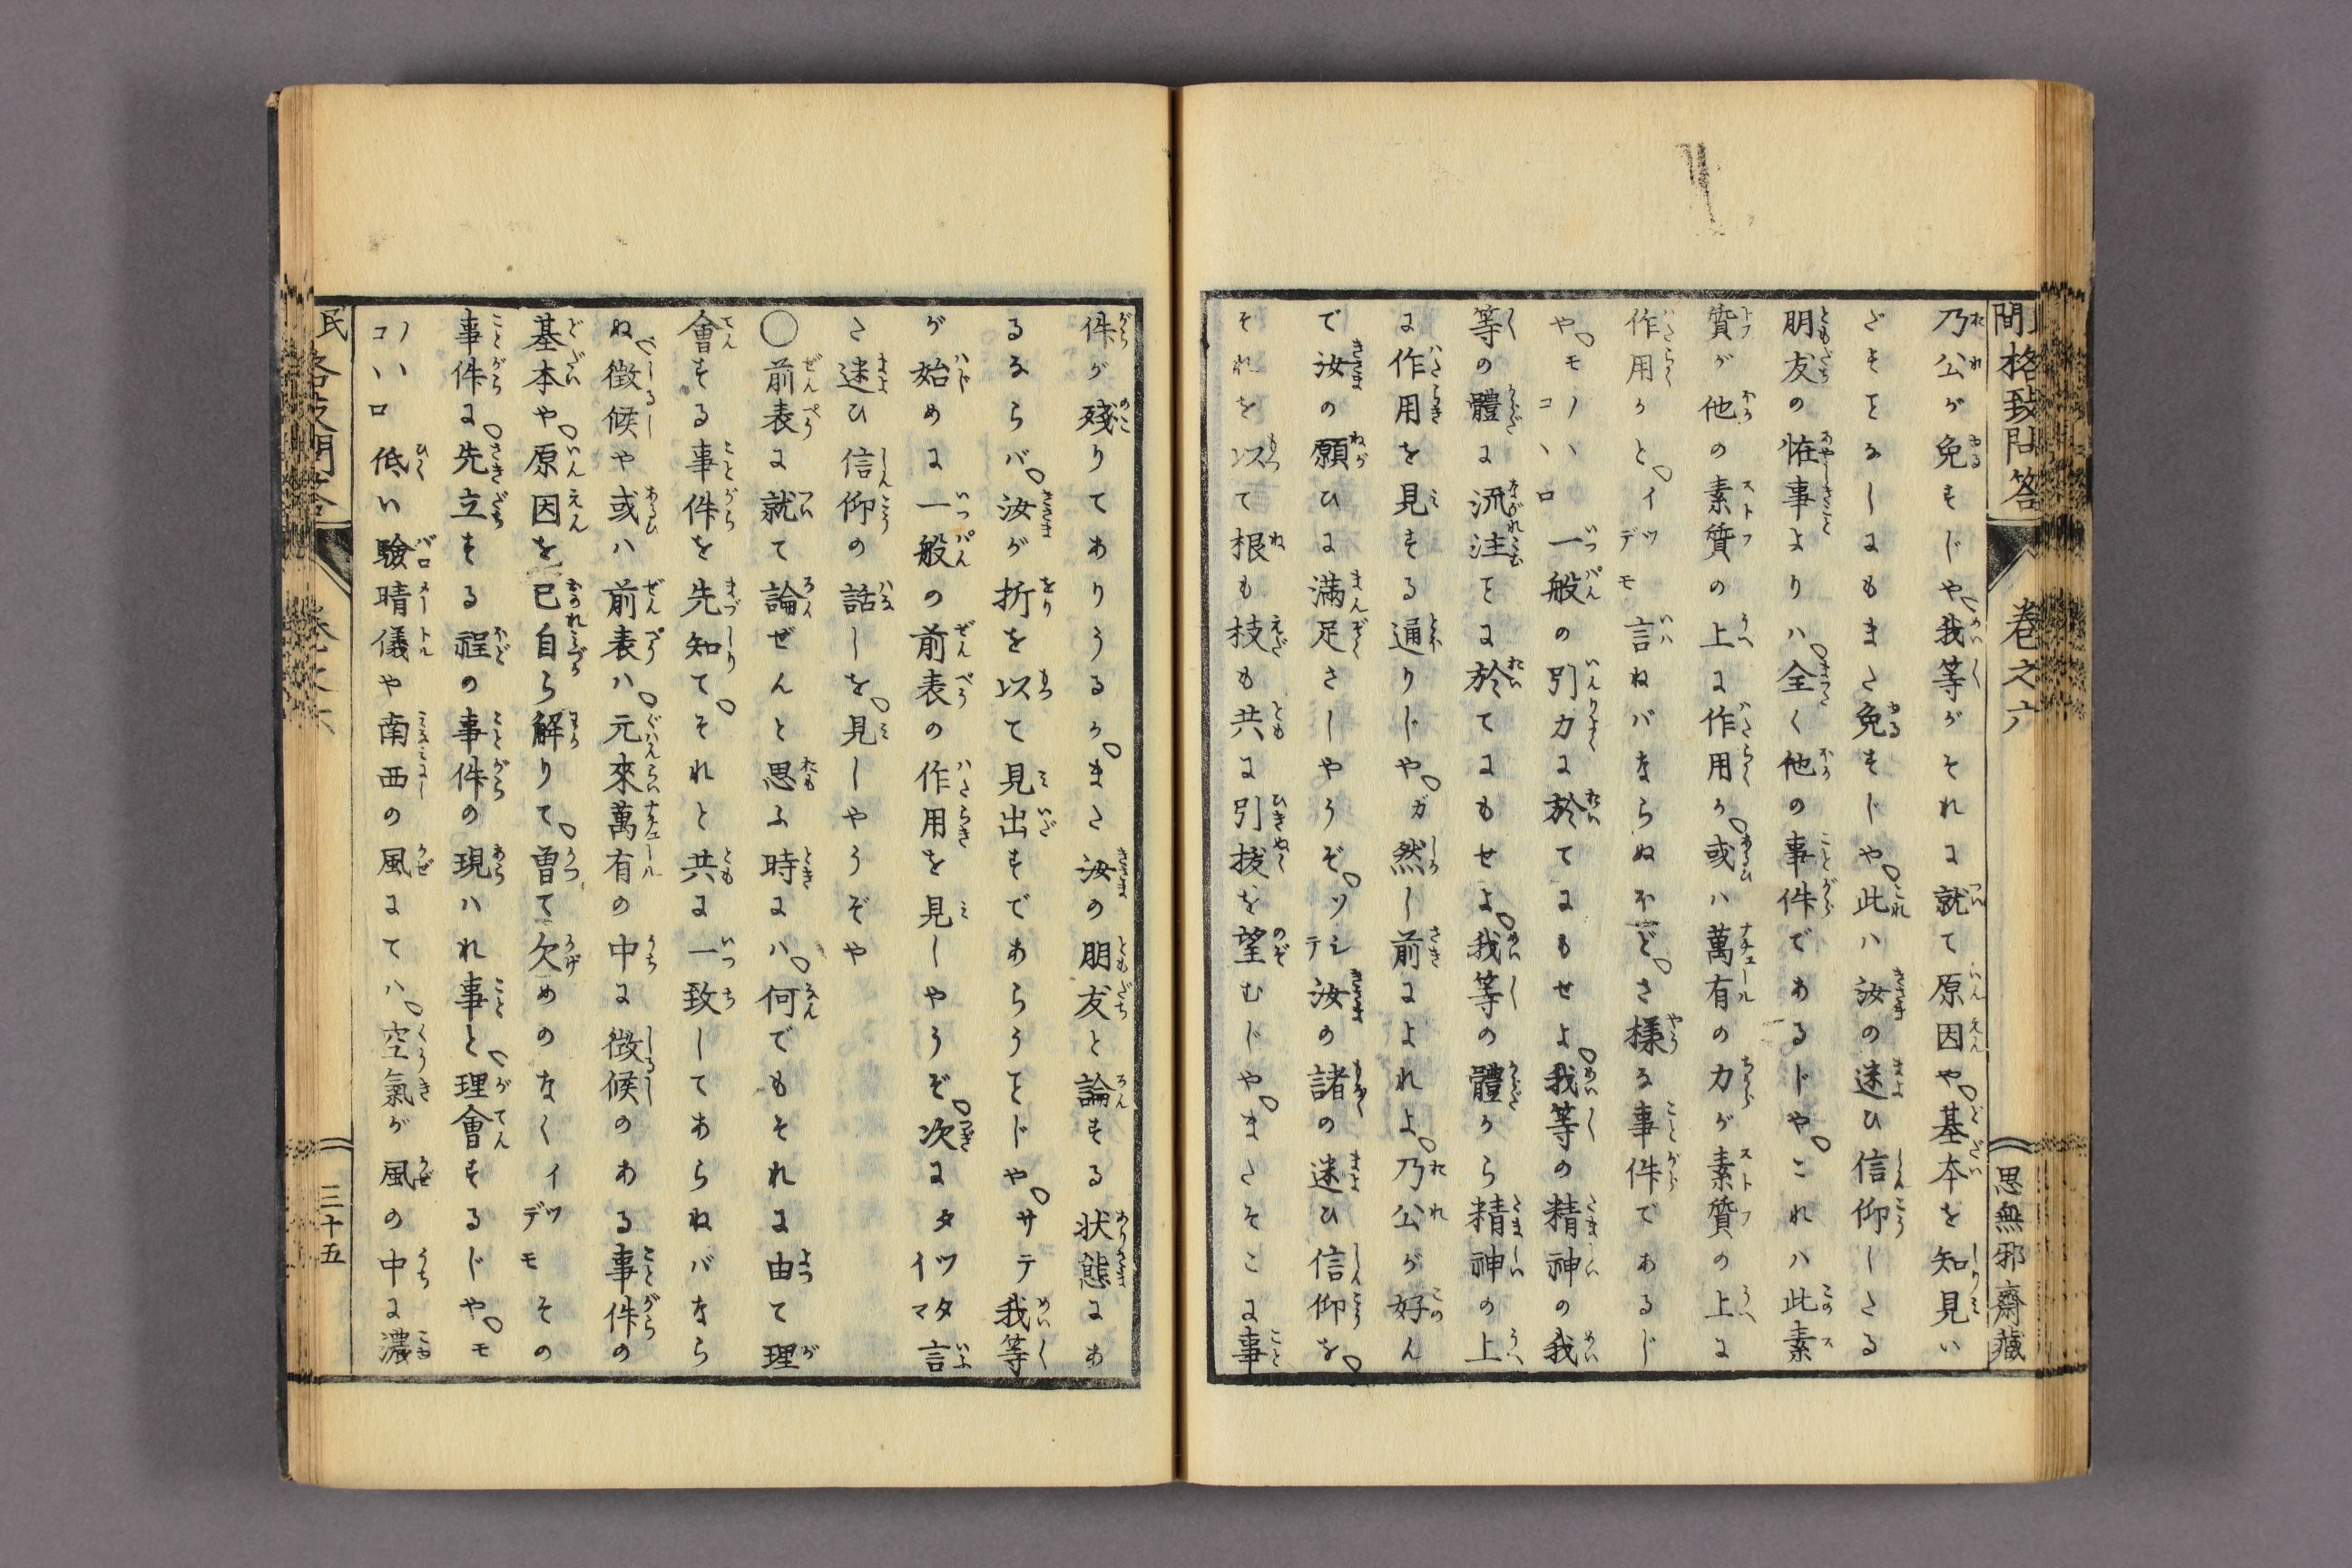 乃公が免すじや、我等がそれに就て原因や、基本を知見い
ざすをなしにもまた免すじや、此ハ汝の迷ひ信仰したる
朋友の恠事よりハ、全く他の事件であるじや、これハ此素
質が他の素質の上に作用か、或ハ萬有の力が素質の上に
作用かと、イツデモ言ねバならぬほど、さ様な事件であるじ
や、モノハ、コロ一般の引力に於てにもせよ、我等の精神の我
等の體に流注をに於てにもせよ、我等の體から精神の上
に作用を見する通りじや、ガ然し前によれよ、乃公が好ん
で汝の願ひに満足さしやうぞ、ソシテ汝の諸の迷ひ信仰を、
それを以て根も枝も共に引抜を望むじや、またそこに事
巻之六
思無邪齋藏
件が殘りてありうるか、また汝の朋友と論する状態にあ
るならバ、汝が折を以て見出すであらうをじや、サテ我等
が始めに一般の前表の作用を見しやうぞ、次にタツタイマ言
た迷ひ信仰の話しを、見しやうぞや
○前表に就て論ぜんと思ふ時にハ、何でもそれに由て理
會する事件を先知て、それと共に一致してあらねバなら
ぬ、徴候や或ハ前表ハ、元來萬有の中に徴候のある事件の
基本や、原因を已自ら解りて、曽て欠めのなくイツデモその
事件に、先立する程の事件の現ハれ事と、理會するじや、モ
ノハ、コロ低い驗晴儀や南西の風にてハ、空氣が風の中に濃
三十五